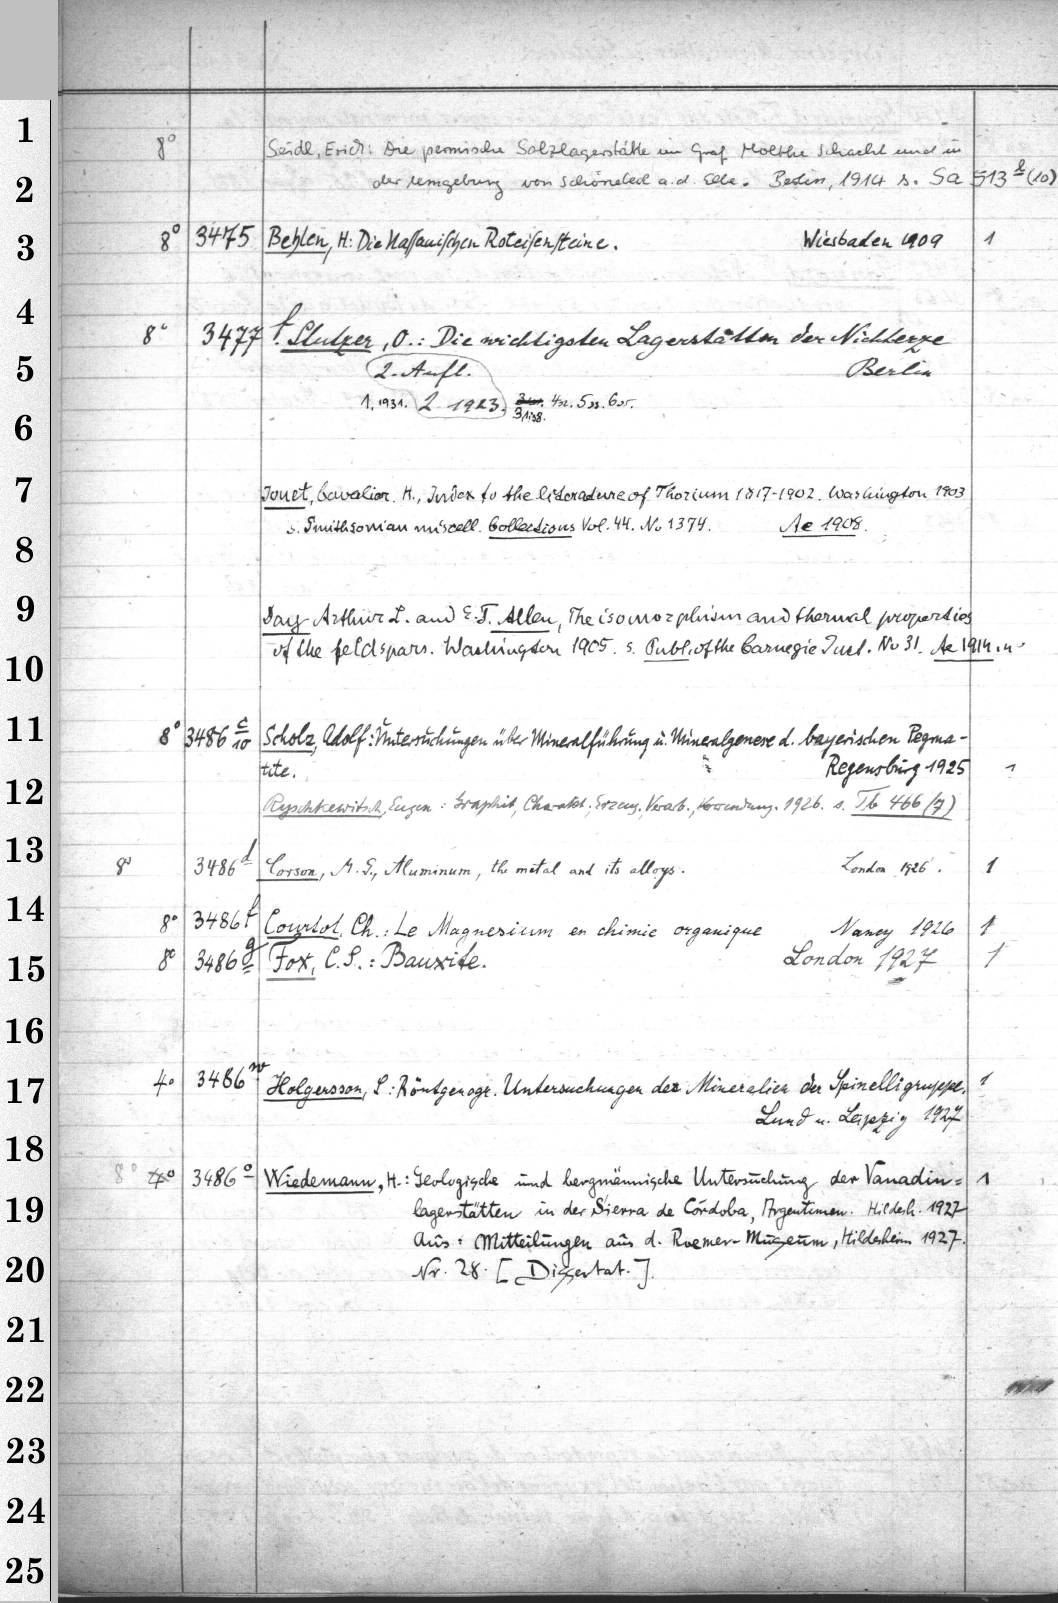 1
8° Seidl, Erich: Die permische Salzlagerstätte im Graf Moltke Schacht und in
2
der Umgebung von Schönebeck a.d. Elbe. Berlin, 1914 s. Sa 513 (10)
3
8° 3475 Behlen, H: Die Nassauischen Roteisensteine. Wiesbaden 1909 1
4
8° 3477 f. Stutzer, O.: Die wichtigsten Lagerstätten der Nichterze
5
2. Aufl. Berlin
1, 1931. 2 1923.
6
7
Jouet, Cavalier. H., Index to the literadure of Thorium 1817-1902. Washington 1903
s. Smithsonian miscell. Collections Vol. 44. No 1374. Ae 1908.
8
9
Day Arthur L. and E.T. Allen, The isomorphism and thermal properties
of the feldspars. Washington 1905. s. Publ. of the Carnegie Inst. No 31. Ae 1914.
10
11
8° 3486 c/10 Scholz, Adolf: Untersuchungen über Mineralführung u. Mineralgenese d. bayerischen Pegma-
tite. Regensburg 1925 1
12
Ryschkewitsch, Eugen: Graphit, Charakt., Erzeug., Verarb., Verwendung. 1926. s. Tb 466 (7)
13
8° 3486 d Corson, M. G., Aluminum, the metal and its alloys. London 1926. 1
14
8° 3486 f Courtot, Ch.: Le Magnesium en chimie organique Nancy 1926 1
15
8° 3486 g Fox, C.S.: Bauxite. London 1927 1
16
17
4° 3486 Holgersson, S: Röntgenogr. Untersuchungen der Mineralien der Spinellgruppe. 1
Lund u. Leipzig 1927
18
8° 4° 3486 o Wiedemann, H.: Geologische und bergmännische Untersuchung der Vanadin= 1
19
lagerstätten in der Sierra de Córdoba, Argentinien. Hildesh. 1927
Aus: Mitteilungen aus d. Roemer-Museum, Hildesheim 1927.
20
Nr. 28. [Dissertat.].
21
22
23
24
25